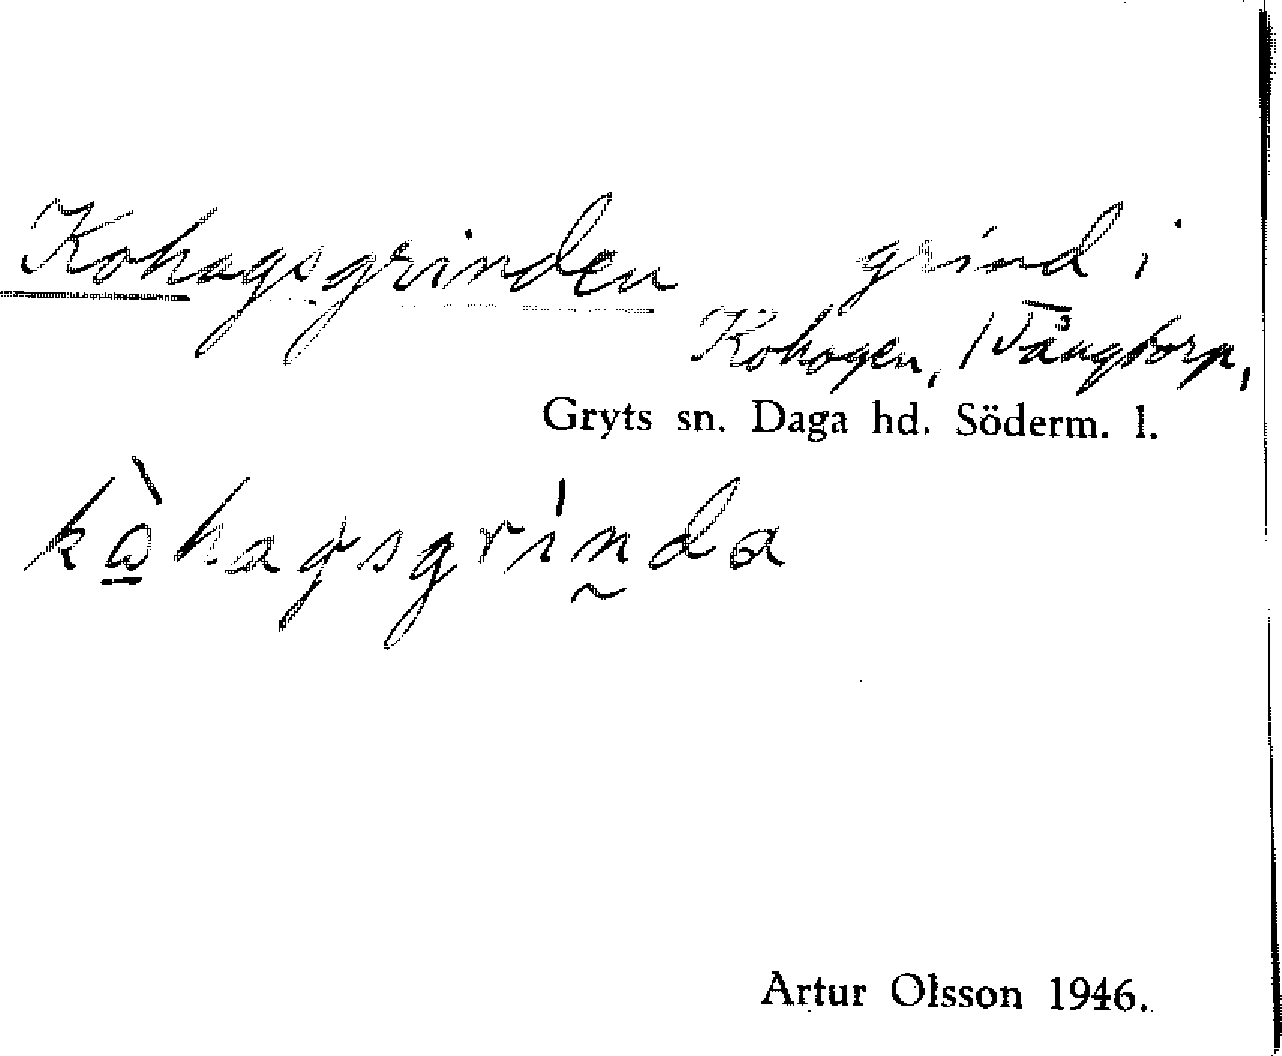 Kohagsgrinden grind i
Kohagen, Vängtorp,
Gryts sn. Daga hd. Söderm. l.
kòhagsgrinda
Artur Olsson 1946.